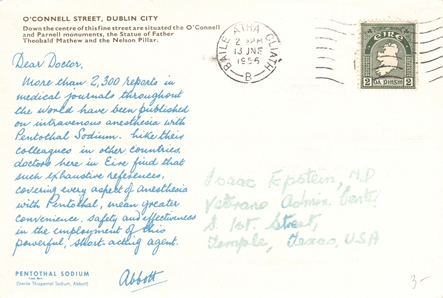 O'CONNELL STREET, DUBLIN CITY
Down the centre of this fine street are situated the O'Connell
and Parnell monuments, the Statue of Father
Theobald Mathew and the Nelson Pillar.
BAILE ÁTHA CLIATH
2 PM
13 JNE
1956
B
EIRE
2 2
Dear Doctor,
More than 2,300 reports in
medical journals throughout
the world have been published
on intravenous anesthesia with
Pentothal Sodium. Like their
colleagues in other countries,
doctors here in Eire find that
such exhaustive references,
covering every aspect of anesthesia
with Pentothal, mean greater
convenience, safety and effectiveness
in the employment of this
powerful, short-acting agent.
Abbott
PENTOTHAL SODIUM
(Sterile Thiopental Sodium, Abbott)
Isaac Epstein, M.D
Veterans Admin. Cent.
S. 1st. Street,
Temple, Texas, USA
3-